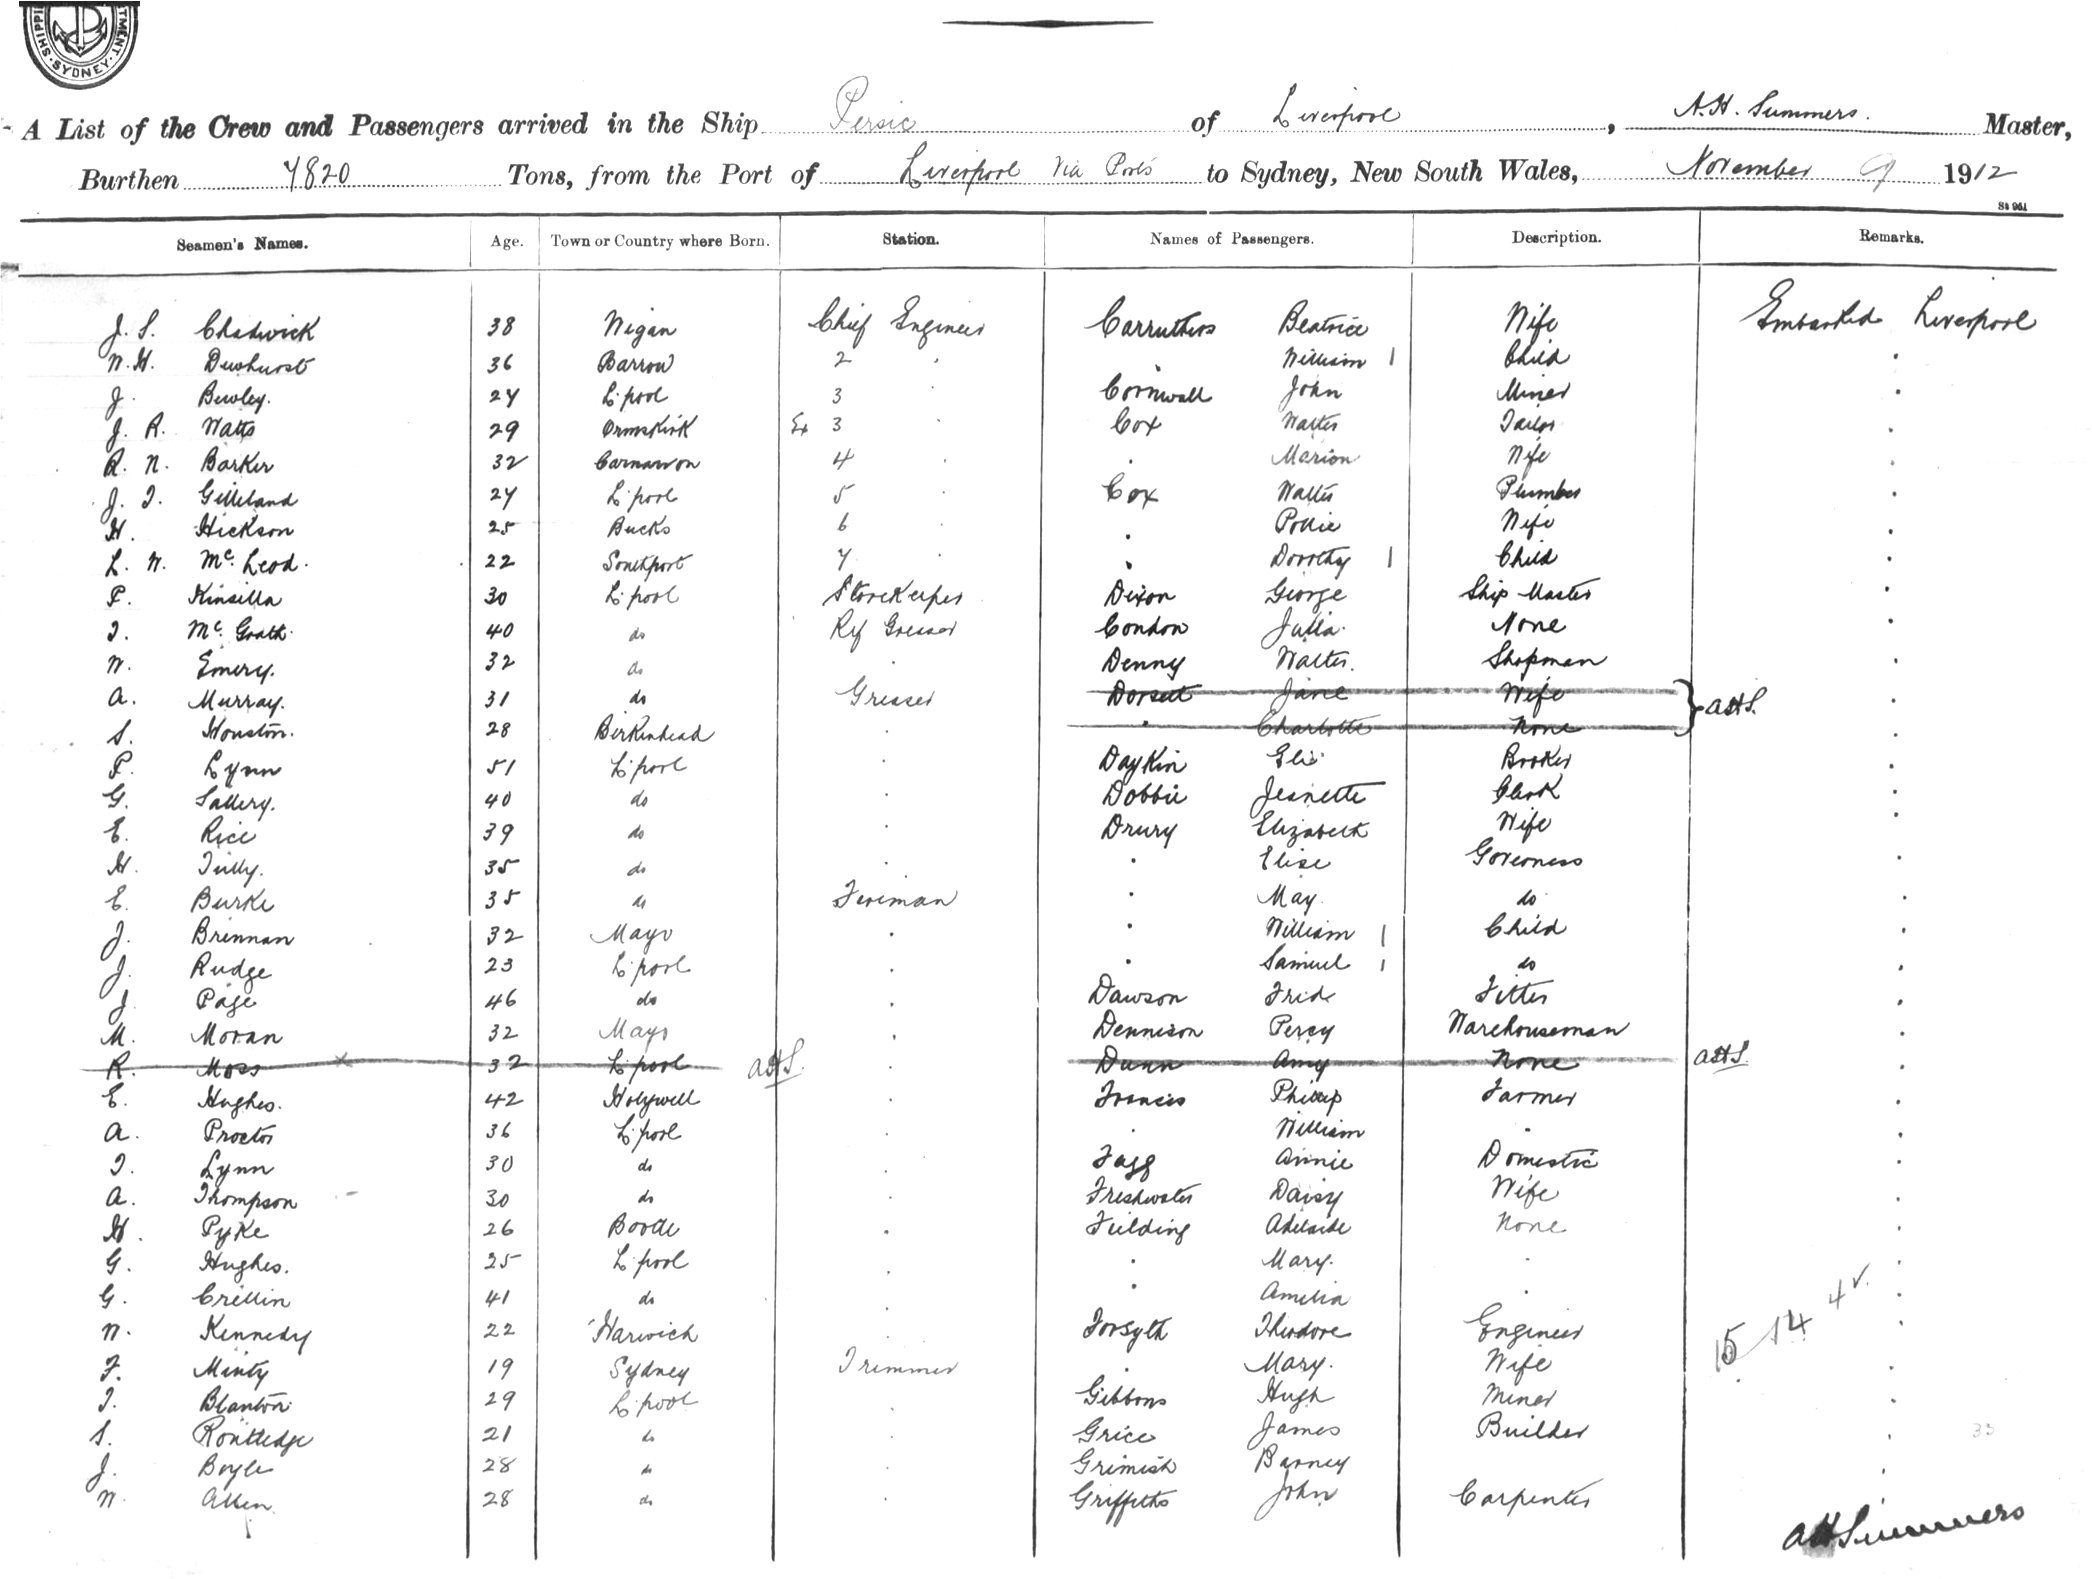 SHIPPI TMENT. SYDNEY.
A List of the Crew and Passengers arrived in the Ship Persic of Liverpool, A.H. Summers. Master,
Burthen 7820 Tons, from the Port of Liverpool Via Ports to Sydney, New South Wales, November 9 1912
St 951
Seamen's Names. Age. Town or Country where Born. Station. Names of Passengers. Description. Remarks.
J. S. Chadwick 38 Wigan Chief Engineer Carruthers Beatrice Wife Embarked Liverpool
W. H. Dewhurst 36 Barrow 2 " " William 1 Child "
J. Bewley. 24 L'pool 3 " Cornwall John Miner "
J. R. Watts 29 Ormskirk Ex 3 " Cox Walter Tailor "
R. N. Barker 32 Carnarvon 4 " " Marion Wife "
J. T. Gilleland 24 L'pool 5 " Cox Walter Plumber "
H. Hickson 25 Bucks 6 " " Pollie Wife "
L. W. McLeod. 22 Southport 7 " " Dorothy 1 Child "
P. Kinsella 30 L'pool Storekeeper Dixon George Ship Master "
T. McGrath. 40 do Ref Greaser Condon Julia. None "
W. Emery. 32 do " Denny Walter. Shopman "
A. Murray. 31 do Greaser Dorsett Jane Wife } AHS.
S. Houston. 28 Birkenhead " " Charlotte None "
P. Lynn 51 L'pool " Daykin Eli Broker "
G. Sallery. 40 do " Dobbie Jeanette Clerk "
E. Rice 39 do " Drury Elizabeth Wife "
H. Tully. 35 do " " Elise Governess "
E. Burke 35 do Fireman " May do "
J. Brennan 32 Mayo " " William 1 Child "
J. Rudge 23 L'pool " " Samuel 1 do "
J. Page 46 do " Dawson Fred Fitter "
M. Moran 32 Mayo " Dennison Percy Warehouseman "
R. Moss x 32 L'pool AHS. " Dunn Amy None AHS. "
E. Hughes. 42 Holywell " Francis Phillip Farmer "
A. Proctor 36 L'pool " " William " "
T. Lynn 30 do " Fagg Annie Domestic "
A. Thompson 30 do " Freshwater Daisy Wife "
H. Pyke 26 Bootle " Fielding Adelaide None "
G. Hughes. 25 L'pool " " Mary. " "
G. Crellin 41 do " " Amelia " "
W. Kennedy 22 Harwich " Forsyth Theodore Engineer 15 14 4 "
F. Minty 19 Sydney Trimmer " Mary. Wife "
T. Blanton 29 L'pool " Gibbons Hugh Miner "
S. Routledge 21 do " Grice James Builder " 33
J. Boyle 28 do " Grimish Barney "
W. Allen 28 do " Griffiths John Carpenter "
AHSummers